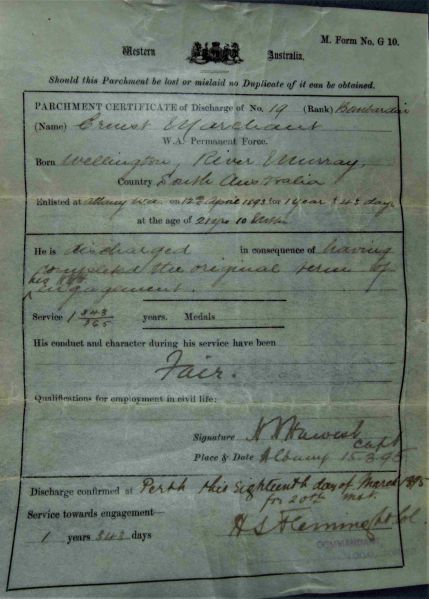 M. Form No. G 10.
Western Australia.
Should this Parchment be lost or mislaid no Duplicate of it can be obtained.
PARCHMENT CERTIFICATE of Discharge of No. 19 (Rank) Bombardier
(Name) Ernest Marchant
W.A. Permanent Force.
Born Wellington, River Murray,
Country South Australia
Enlisted at Albany W.A. on 12th April 1893 for 1 year 343 days
at the age of 21 yrs 10
He is discharged in consequence of having
completed the original term of
his engagement.
Service 1 343/365 years. Medals
His conduct and character during his service have been
Fair.
Qualifications for employment in civil life:
Signature Capt
Place & Date Albany 15.3.95
Discharge confirmed at Perth this Eighteenth day of March 1895
for 20th inst.
Service towards engagement—
1 years 343 days
H S Fleming Lt Col.
COMMANDANT